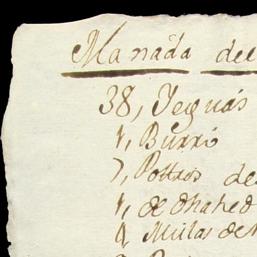 Manada del
38, Yeguas
1, Burro
7, Pottros de
1, de
9, Mulas de